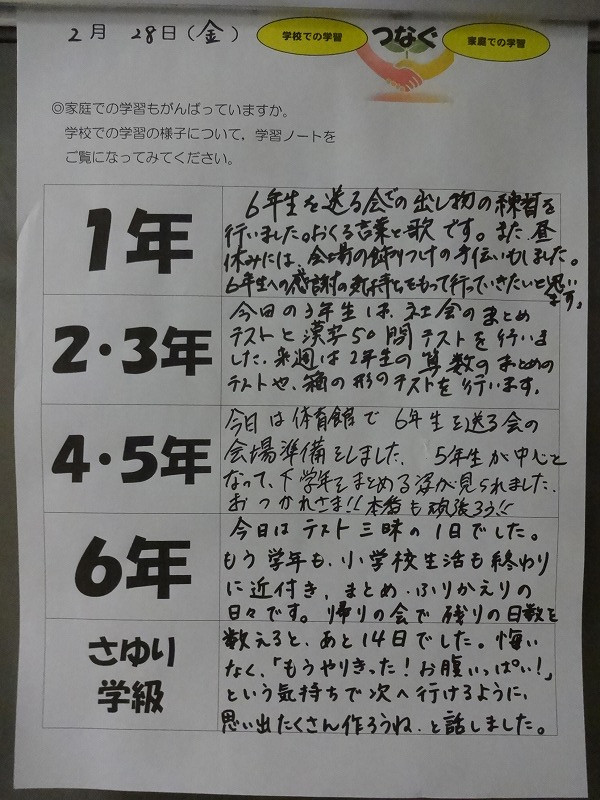 2月 28日(金)
学校での学習 つなぐ 家庭での学習
◎家庭での学習もがんばっていますか。
学校での学習の様子について,学習ノートを
ご覧になってみてください。
1年
6年生を送る会での出し物の練習を
行いました。おくる言葉と歌です。また、昼
休みには、会場の飾りつけの手伝いもしました。
6年生への感謝の気持ちをもって行っていきたいと思い
ます。
2・3年
今日の3年生は、社会のまとめ
テストと漢字50問テストを行いま
した。来週は2年生の算数のまとめの
テストや、箱の形のテストを行います。
4・5年
今日は体育館で6年生を送る会の
会場準備をしました。5年生が中心と
なって、下学年をまとめる姿が見られました。
おつかれさま!!本番も頑張ろう!!
6年
今日はテスト三昧の1日でした。
もう学年も、小学校生活も終わり
に近付き、まとめ・ふりかえりの
日々です。帰りの会で残りの日数を
さゆり
学級
数えると、あと14日でした。悔い
なく、「もうやりきった!お腹いっぱい!」
という気持ちで次へ行けるように、
思い出たくさん作ろうね、と話しました。